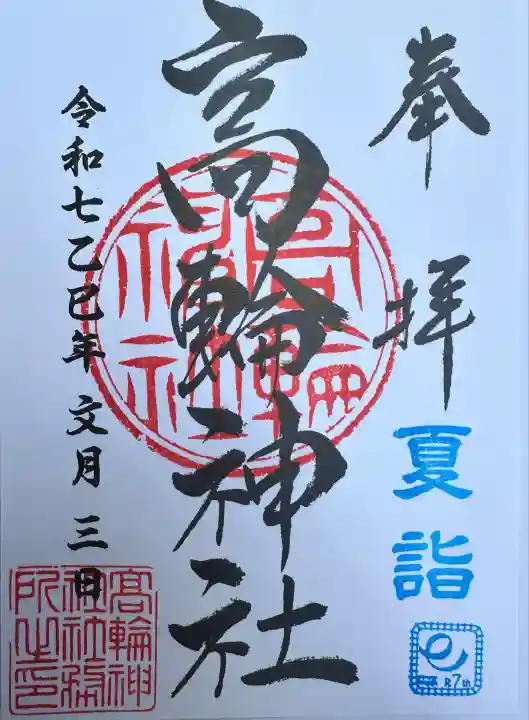 奉拝
夏詣
R7th
高輪神社
高輪神社
令和七乙巳年 文月 三日
高輪神社社務所之印